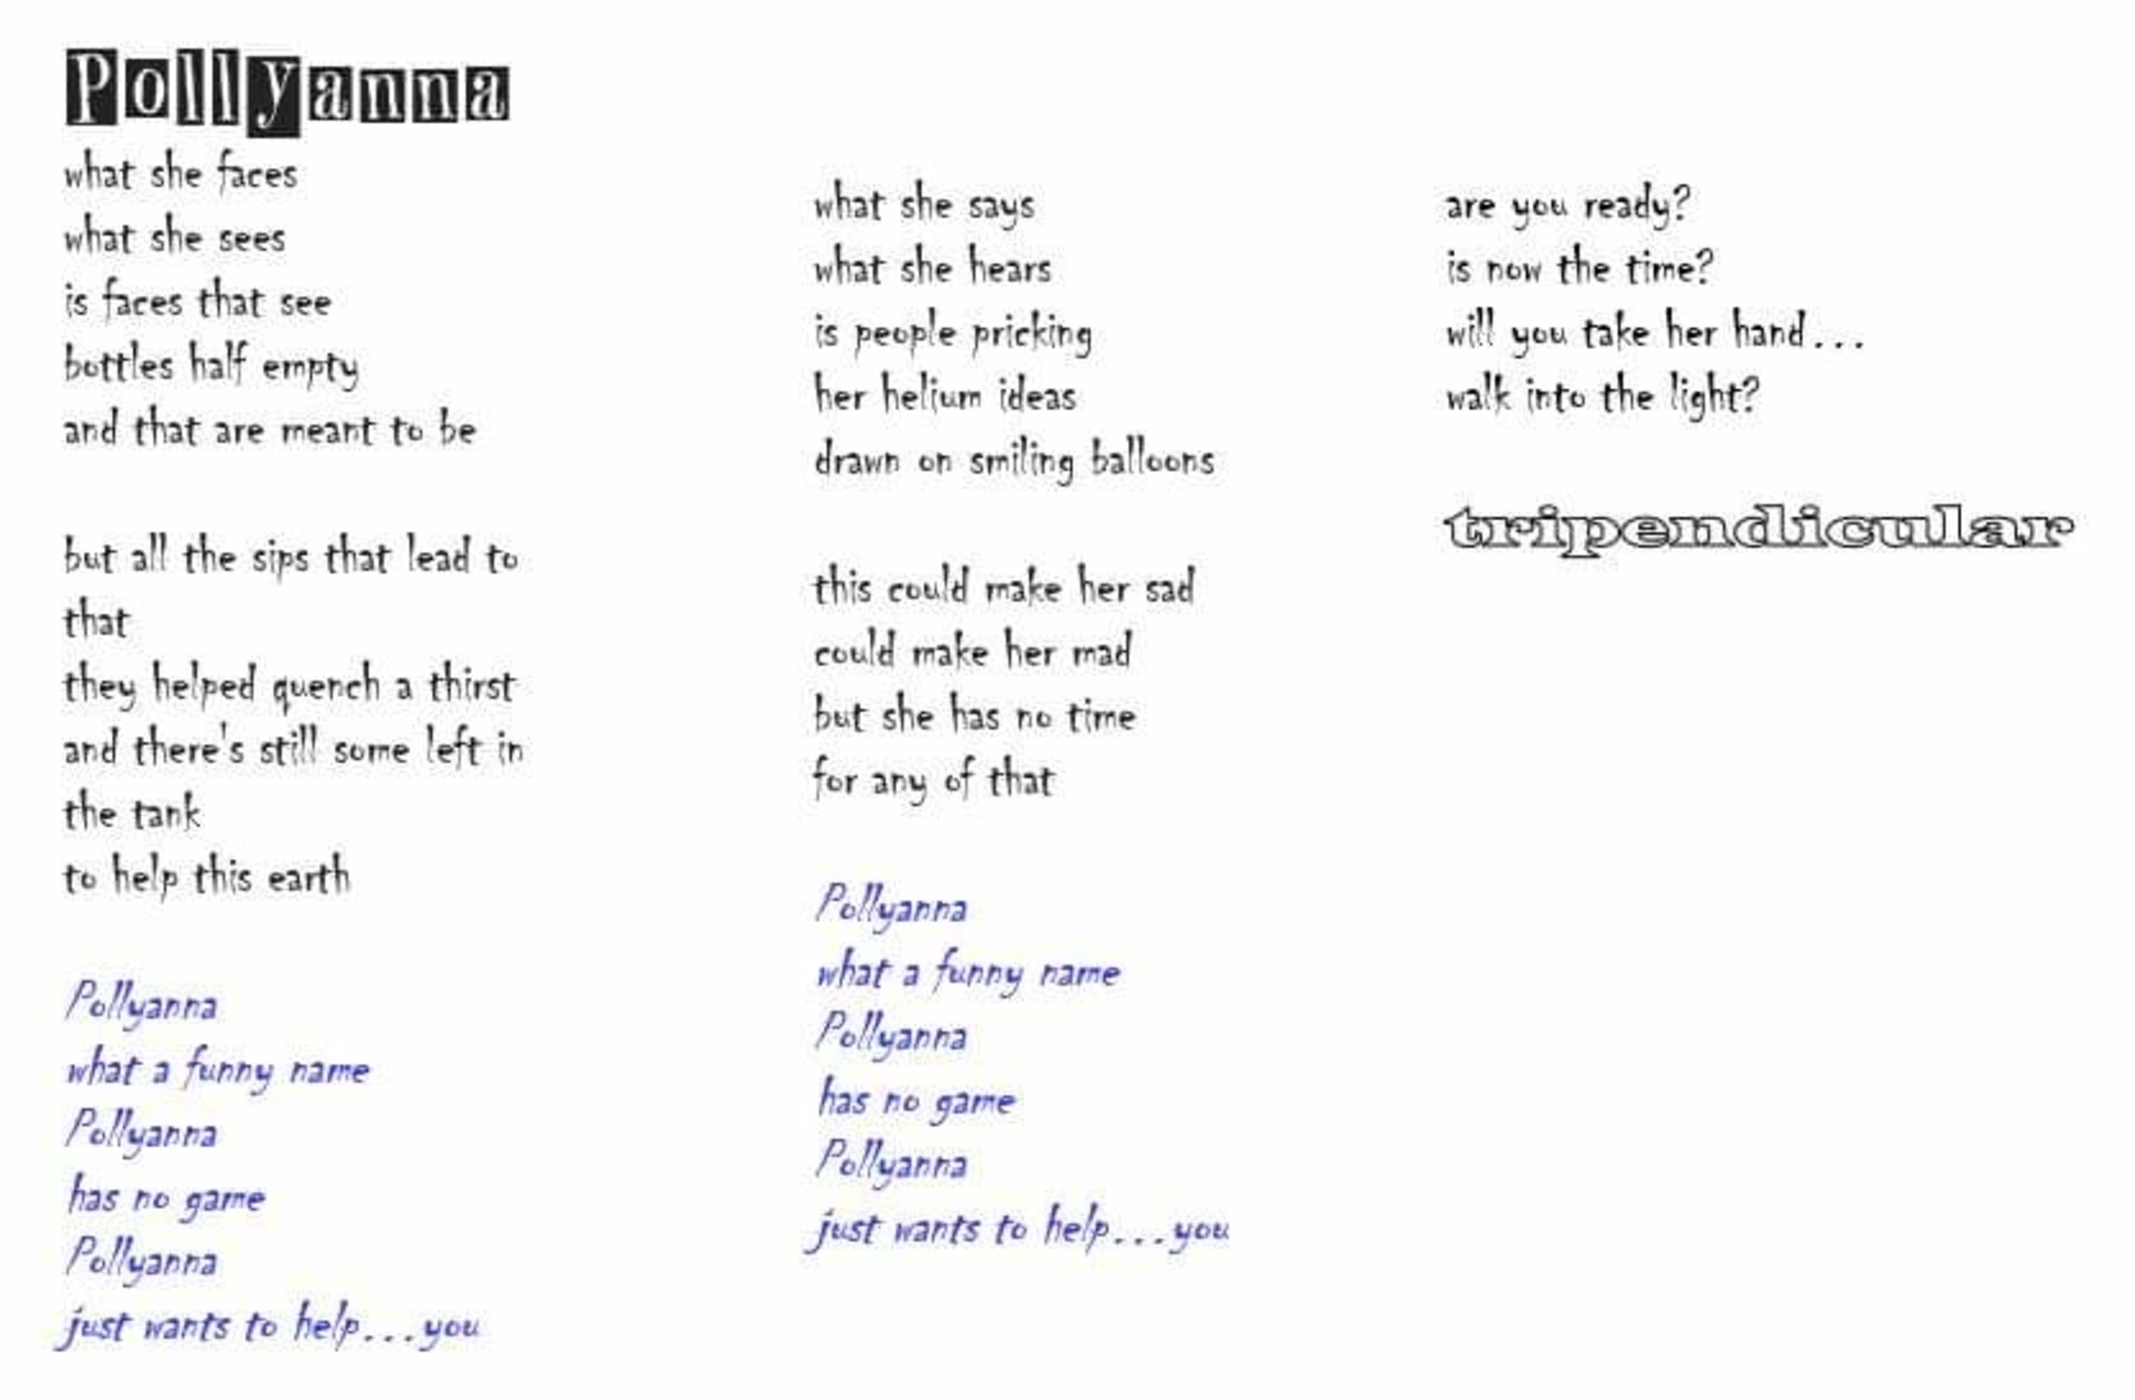 Pollyanna
what she faces
what she sees
is faces that see
bottles half empty
and that are meant to be
but all the sips that lead to
that
they helped quench a thirst
and there's still some left in
the tank
to help this earth
Pollyanna
what a funny name
Pollyanna
has no game
Pollyanna
just wants to help...you
what she says
what she hears
is people pricking
her helium ideas
drawn on smiling balloons
this could make her sad
could make her mad
but she has no time
for any of that
Pollyanna
what a funny name
Pollyanna
has no game
Pollyanna
just wants to help...you
are you ready?
is now the time?
will you take her hand...
walk into the light?
tripendicular